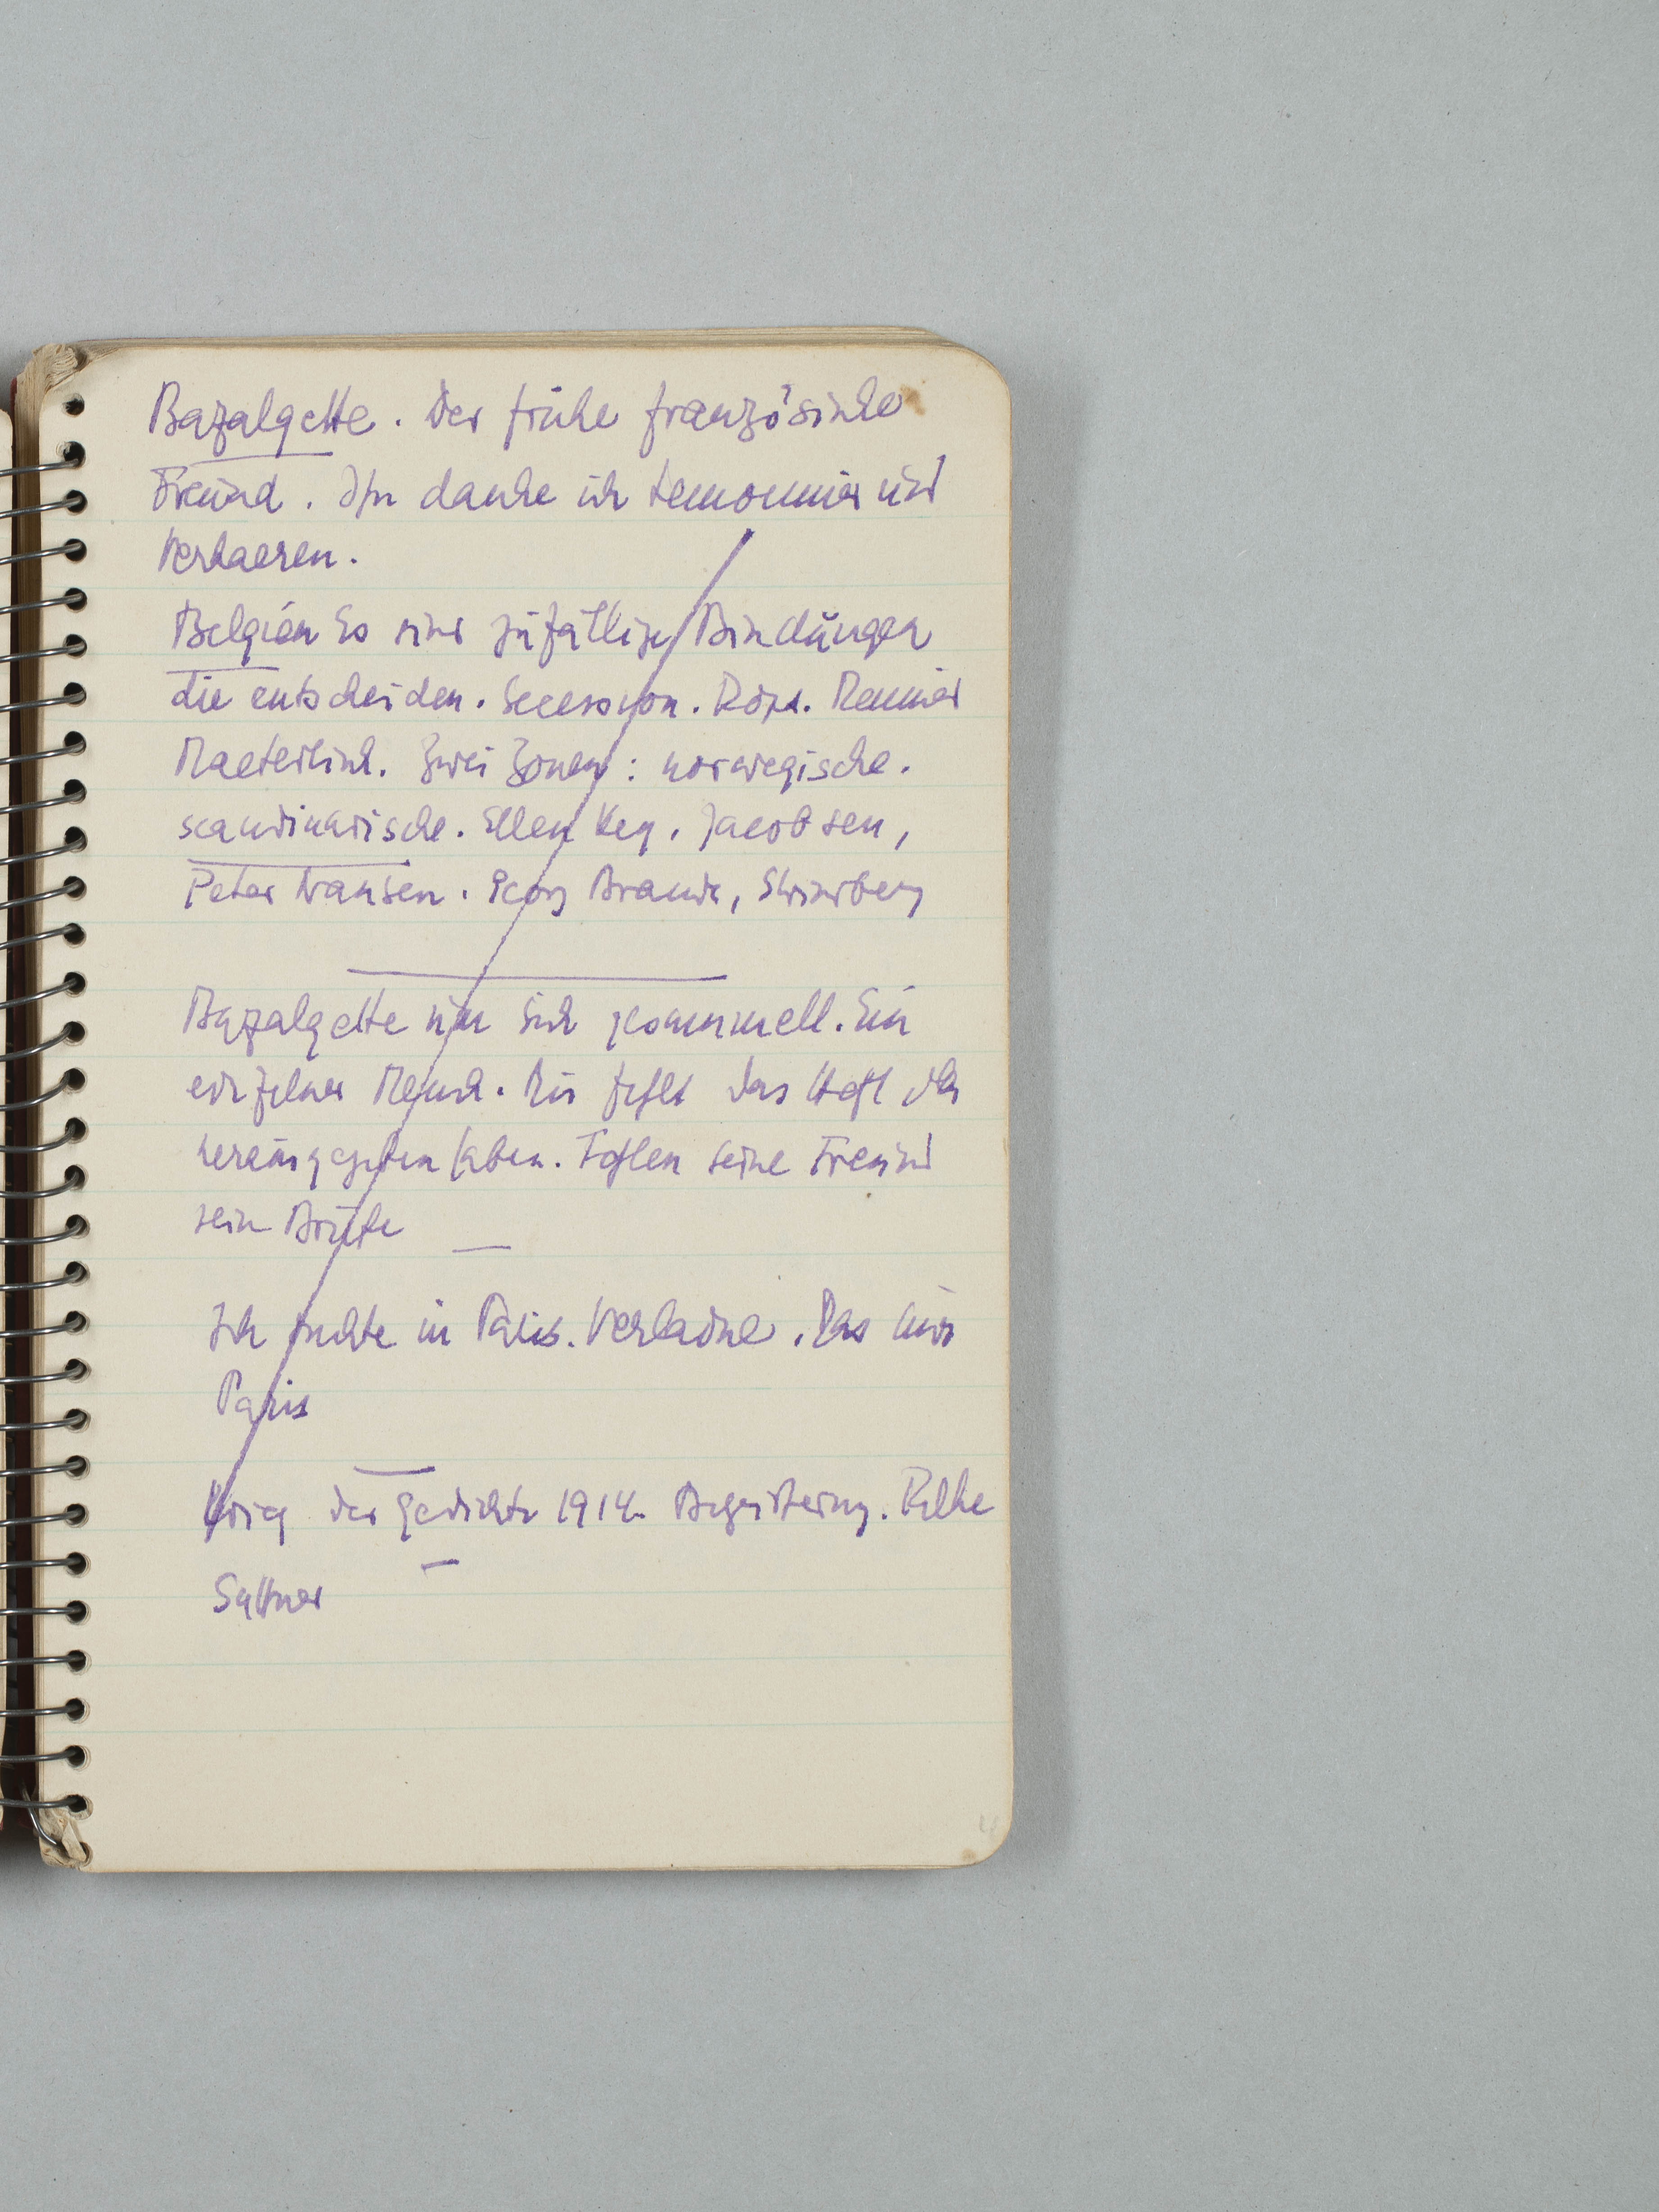 Bazalgette. Der frühe französische
Freund. Ihm danke ich Lemonnier und
Verhaeren.
Belgien Es sind zufällige Bindungen
die entscheiden. Secession. Rops. Meunier
Maeterlink. Zwei Zonen: norwegische.
scandinavische. Ellen Key. Jacobsen,
Peter Nansen. Georg Brandes, Strindberg
Bazalgette um sich . Ein
einzelner Mensch. Mir fehlt das Heft das
herausgegeben haben. Fehlen seine Freund
sein Briefe
Ich suchte in Paris. Verlaine. Das
Paris
Krieg der Gedichte 1914. Begeisterung. Rilke
Suttner